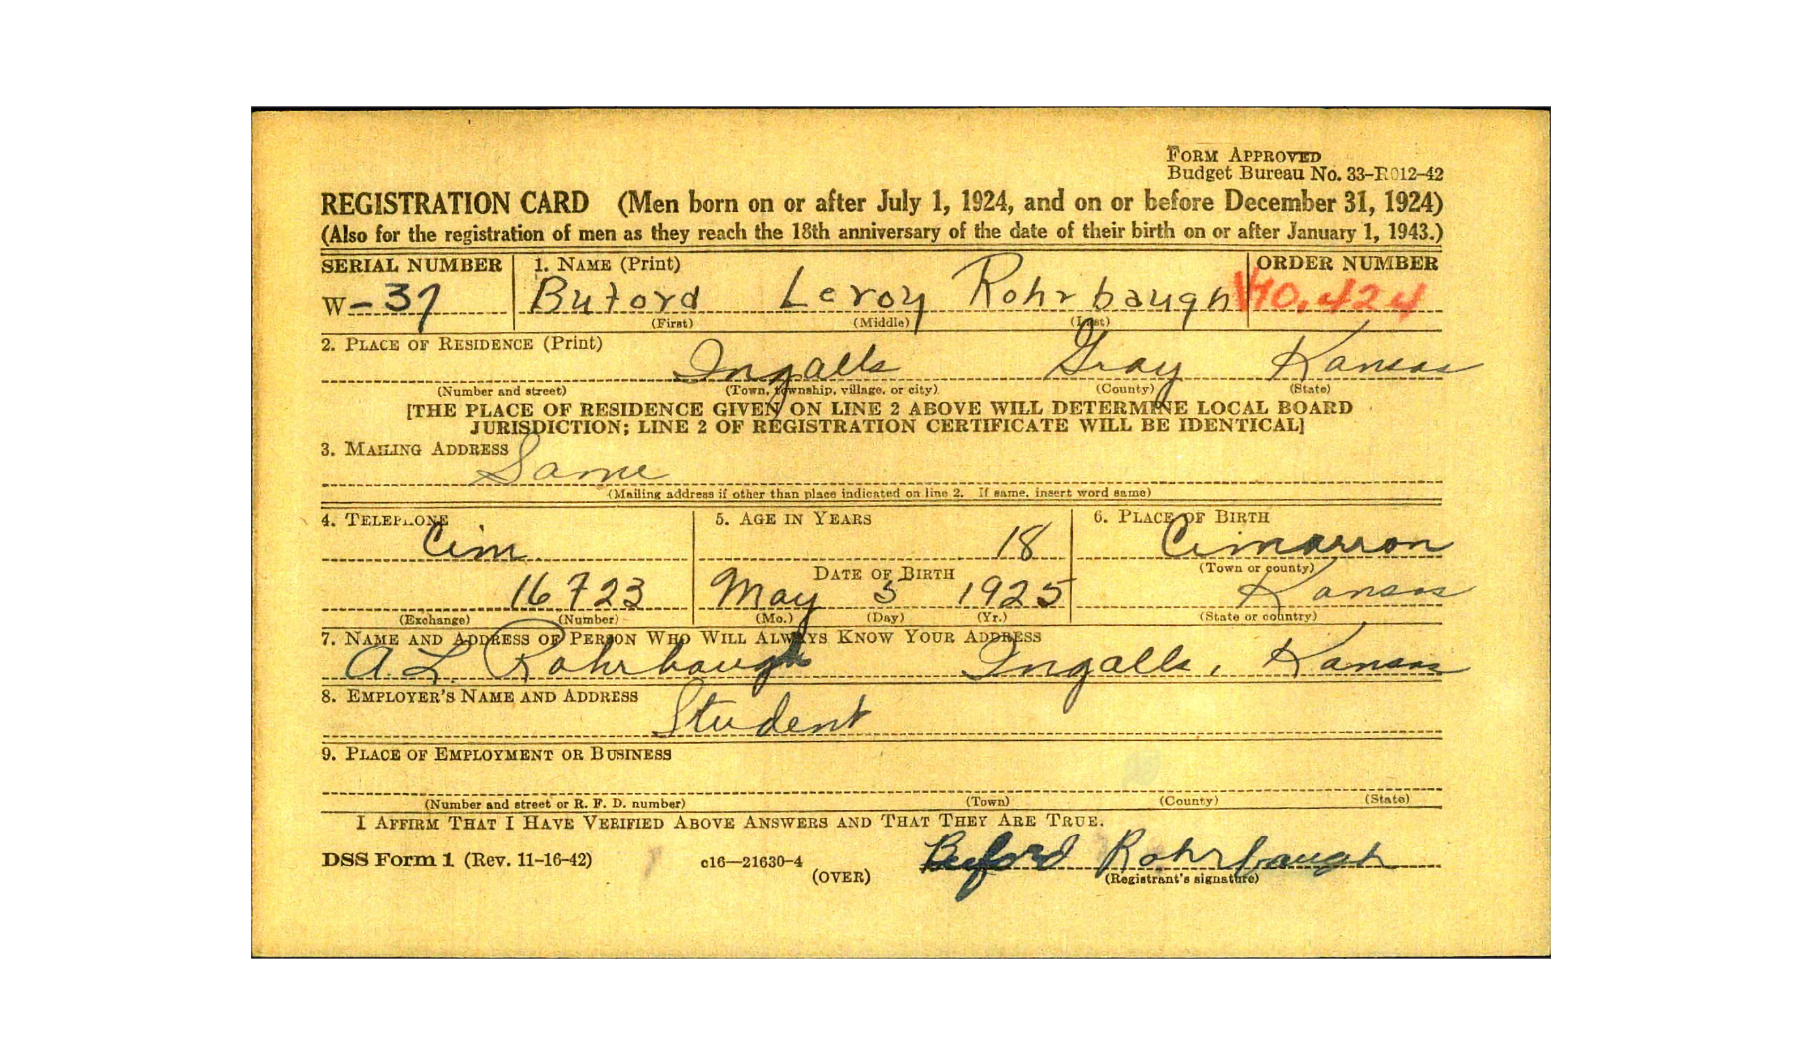 FORM APPROVED
Budget Bureau No. 33-R012-42
REGISTRATION CARD (Men born on or after July 1, 1924, and on or before December 31, 1924)
(Also for the registration of men as they reach the 18th anniversary of the date of their birth on or after January 1, 1943.)
SERIAL NUMBER 1. NAME (Print) ORDER NUMBER
W-37 Buford Leroy Rohrbaugh 10,424
(First) (Middle) (Last)
2. PLACE OF RESIDENCE (Print)
Ingalls Gray Kansas
(Number and street) (Town, township, village, or city) (County) (State)
[THE PLACE OF RESIDENCE GIVEN ON LINE 2 ABOVE WILL DETERMINE LOCAL BOARD
JURISDICTION; LINE 2 OF REGISTRATION CERTIFICATE WILL BE IDENTICAL]
3. MAILING ADDRESS
Same
(Mailing address if other than place indicated on line 2. If same, insert word same)
4. TELEPHONE 5. AGE IN YEARS 6. PLACE OF BIRTH
Cim 18 Cimarron
DATE OF BIRTH (Town or county)
16 F 23 May 5 1925 Kansas
(Exchange) (Number) (Mo.) (Day) (Yr.) (State or country)
7. NAME AND ADDRESS OF PERSON WHO WILL ALWAYS KNOW YOUR ADDRESS
A. L. Rohrbaugh Ingalls, Kansas
8. EMPLOYER'S NAME AND ADDRESS
Student
9. PLACE OF EMPLOYMENT OR BUSINESS
(Number and street or R. F. D. number) (Town) (County) (State)
I AFFIRM THAT I HAVE VERIFIED ABOVE ANSWERS AND THAT THEY ARE TRUE.
DSS Form 1 (Rev. 11-16-42) c16—21630-4 Buford Rohrbaugh
(OVER) (Registrant's signature)